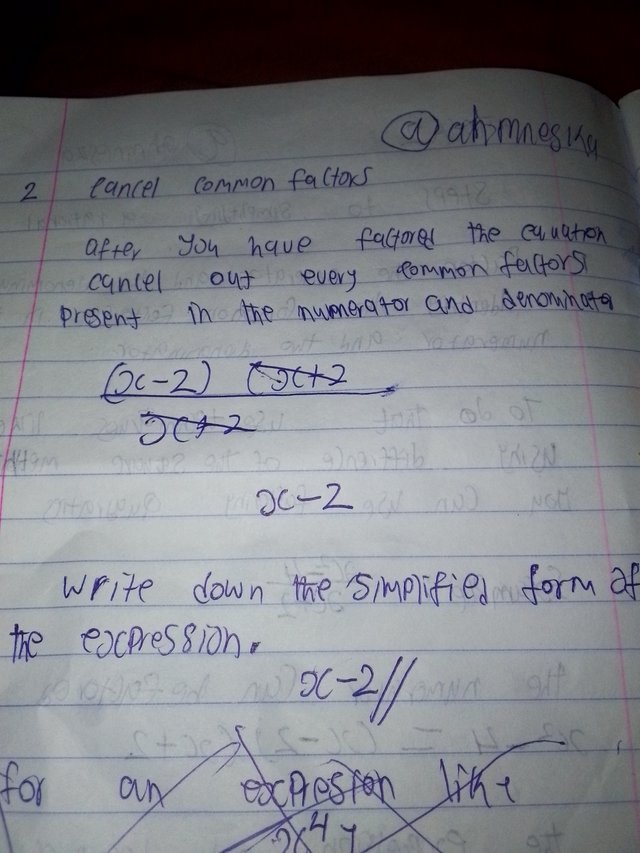 @ahmneska
2 cancel common factors
after you have factored the equation
cancel out every common factors
present in the numerator and denominator
(x-2) (x+2
x+2
x-2
Write down the simplified form of
the expression.
x-2//
for an expression like